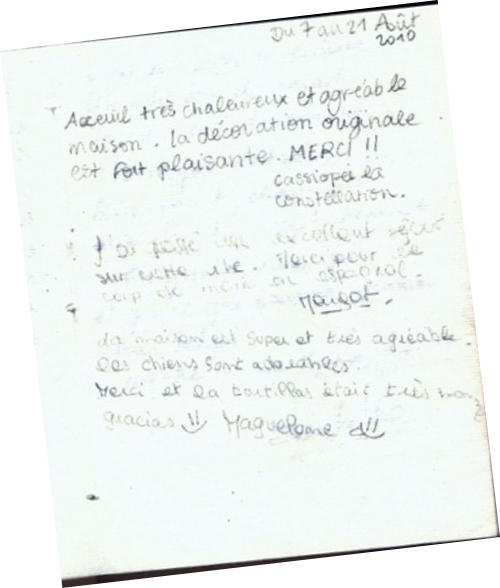 Du 7 au 21 Août
2010
Acceuil très chaleureux et agréable
maison. la décoration originale
est fort plaisante. MERCI !!
cassiopee la
constellation.
J'ai passé un excellent séjour
sur cette île. Merci pour le
coup de main en espagnol.
Margot.
La maison est super et très agréable.
les chiens sont adorables.
Merci et la tortillas était très
gracias !! Maguelone !!